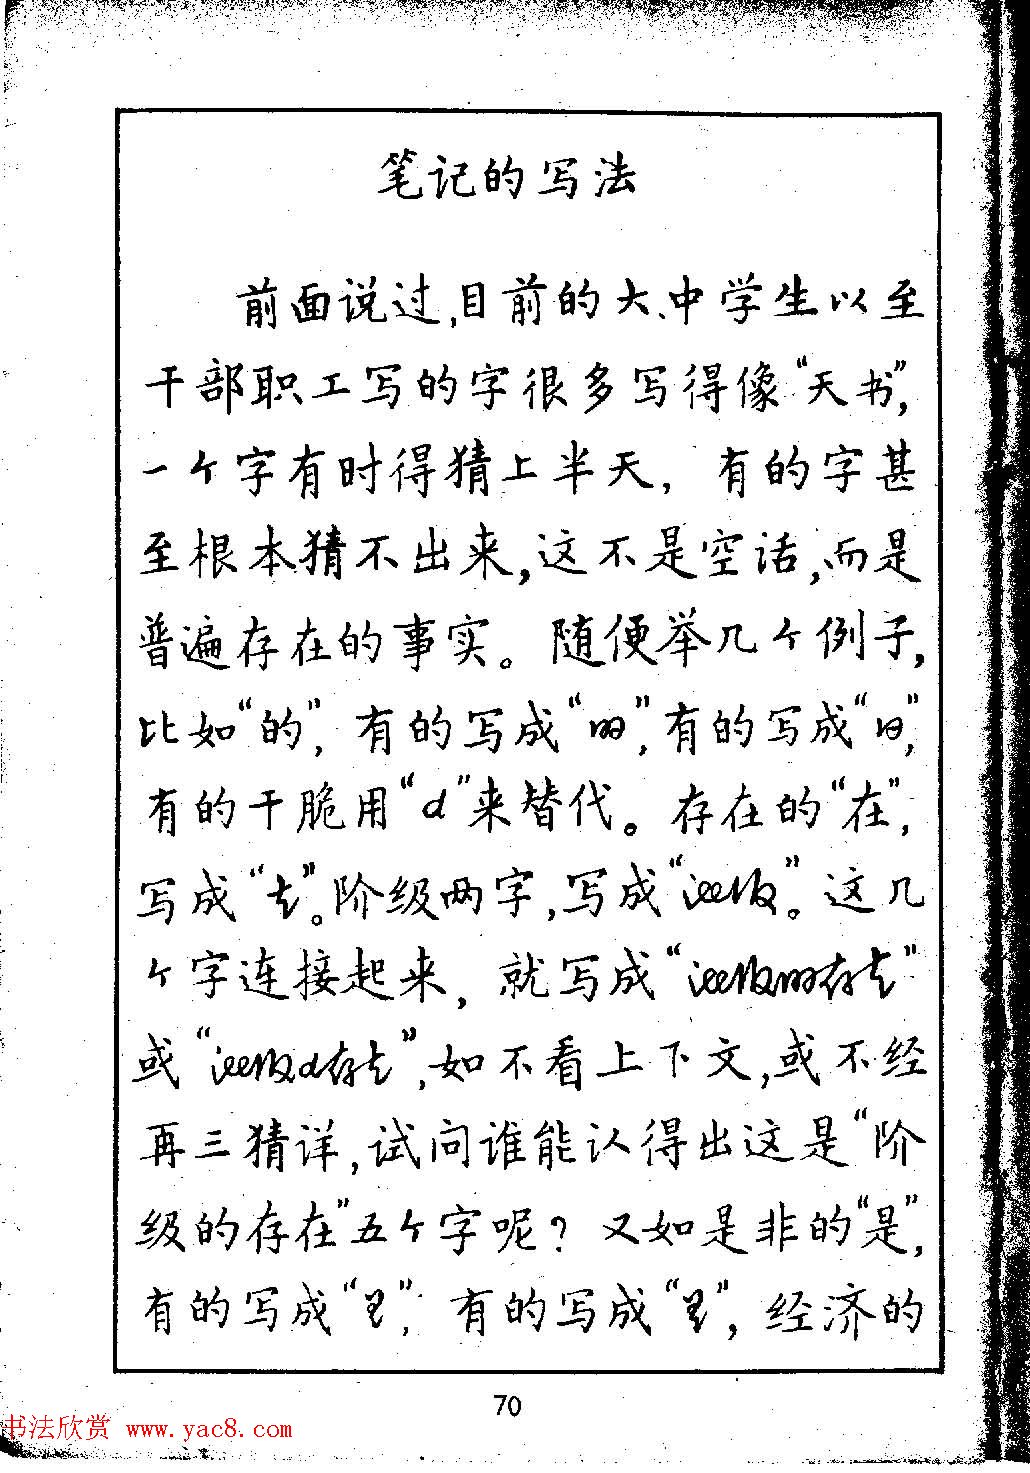 笔记的写法
前面说过,目前的大、中学生以至
干部职工写的字很多写得像“天书”,
一个字有时得猜上半天, 有的字甚
至根本猜不出来,这不是空话,而是
普遍存在的事实。随便举几个例子,
比如“的”, 有的写成“”,有的写成“”,
有的干脆用“d”来替代。存在的“在”,
写成“”。阶级两字,写成“”。这几
个字连接起来, 就写成“”
或“”,如不看上下文,或不经
再三猜详,试问谁能认得出这是“阶
级的存在”五个字呢? 又如是非的“是”,
有的写成“”; 有的写成“”, 经济的
70
书法欣赏 www.yac8.com